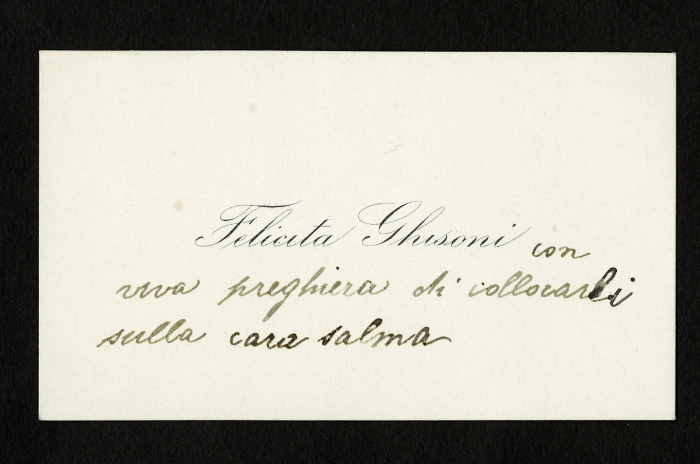 Felicita Ghisoni con
viva preghiera di collocarli
sulla cara salma